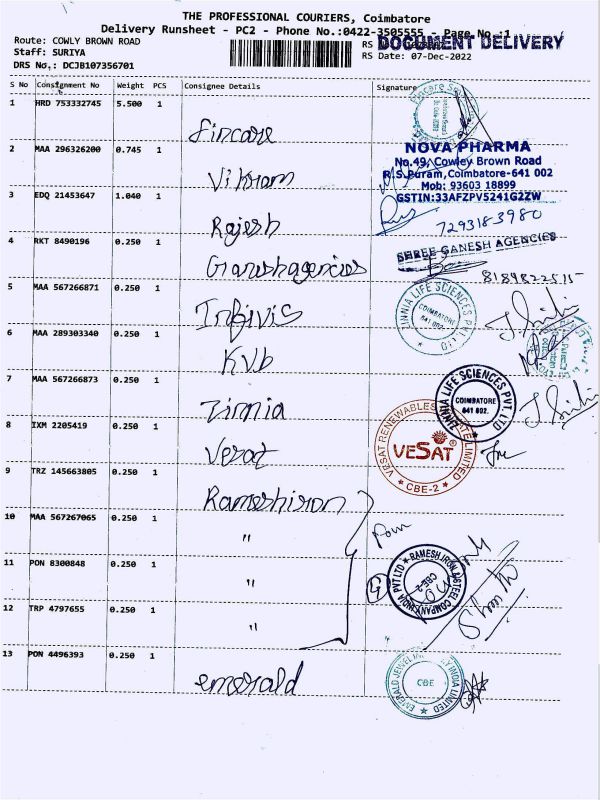 THE PROFESSIONAL COURIERS, Coimbatore
Delivery Runsheet - PC2 - Phone No.:0422-3505555 - Page No.:1
Route: COWLY BROWN ROAD
DOCUMENT DELIVERY
Staff: SURIYA
RS Date: 07-Dec-2022
DRS No.: DCJB107356701
S No Consignment No Weight PCS Consignee Details Signature
1 HRD 753332745 5.500 1 fincare
2 MAA 296326200 0.745 1 Vikram
NOVA PHARMA
No.49, Cowley Brown Road
R.S.Puram, Coimbatore-641 002
Mob: 93603 18899
GSTIN:33AFZPV5241G2ZW
3 EDQ 21453647 1.040 1 Rajesh
7293183980
4 RKT 8490196 0.250 1 Ganeshagencies
SHREE GANESH AGENCIES
8189822515
5 MAA 567266871 0.250 1 Infivis
ZINNIA LIFE SCIENCES PVT LTD
COIMBATORE
641 002.
6 MAA 289303340 0.250 1 KVb
7 MAA 567266873 0.250 1 Zinnia
ZINNIA LIFE SCIENCES PVT. LTD
COIMBATORE
641 002.
8 IXM 2205419 0.250 1 Vesat
VESAT RENEWABLES PRIVATE LIMITED
VESAT ®
* CBE-2 *
9 TRZ 145663805 0.250 1 Rameshiron
10 MAA 567267065 0.250 1 "
11 PON 8300848 0.250 1 "
RAMESH IRON & STEEL COMPANY INDIA PVT LTD
CBE-2
12 TRP 4797655 0.250 1 "
13 PON 4496393 0.250 1 emerald
EMERALD JEWEL INDUSTRY INDIA LIMITED
CBE